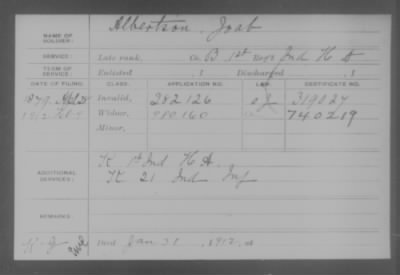 NAME OF SOLDIER: Albertson, Joab
SERVICE: Late rank, Co. B, 1st Reg't Ind H A
TERM OF SERVICE: Enlisted , 1 Discharged , 1
DATE OF FILING. CLASS. APPLICATION NO. LAW. CERTIFICATE NO.
1879. Invalid, 282.126 319027
1912 Widow, 980.160 740219
Minor,
ADDITIONAL SERVICES: K 1st Ind H A.
K 21 Ind Inf
REMARKS:
Died Jan 31, 1912, at